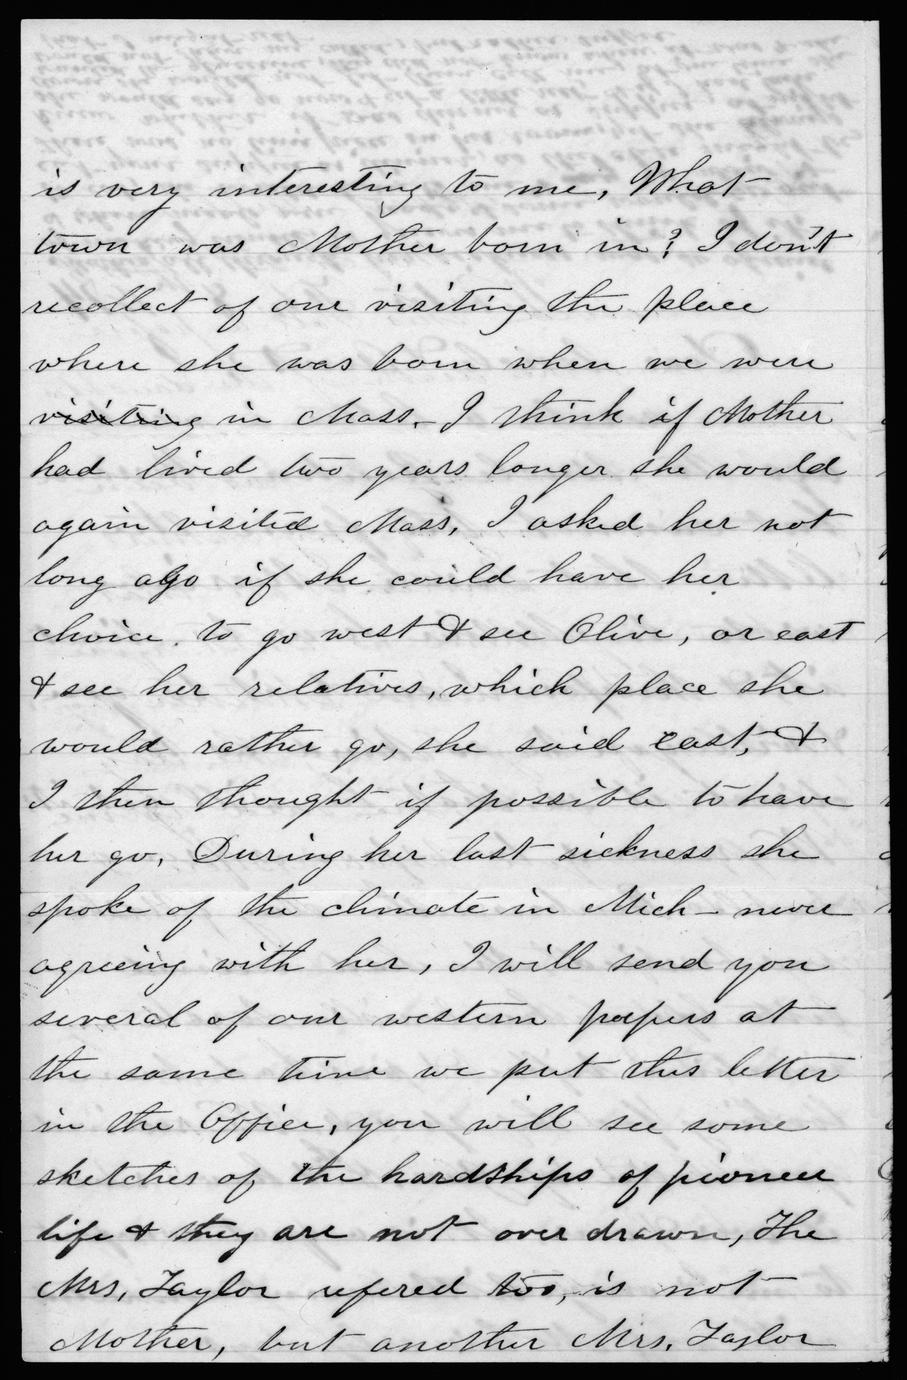 is very interesting to me, What
town was Mother born in? I don't
recollect of our visiting the place
where she was born when we were
visiting in Mass.- I think if Mother
had lived two years longer she would
again visited Mass, I asked her not
long ago if she could have her
choice to go west & see Olive, or east
& see her relatives, which place she
would rather go, she said east, &
I then thought if possible to have
her go, During her last sickness she
spoke of the climate in Mich - never
agreeing with her, I will send you
several of our western papers at
the same time we put this letter
in the Office, you will see some
sketches of the hardships of pioneer
life & they are not over drawn, The
Mrs, Taylor refered too, is not
Mother, but another Mrs. Taylor